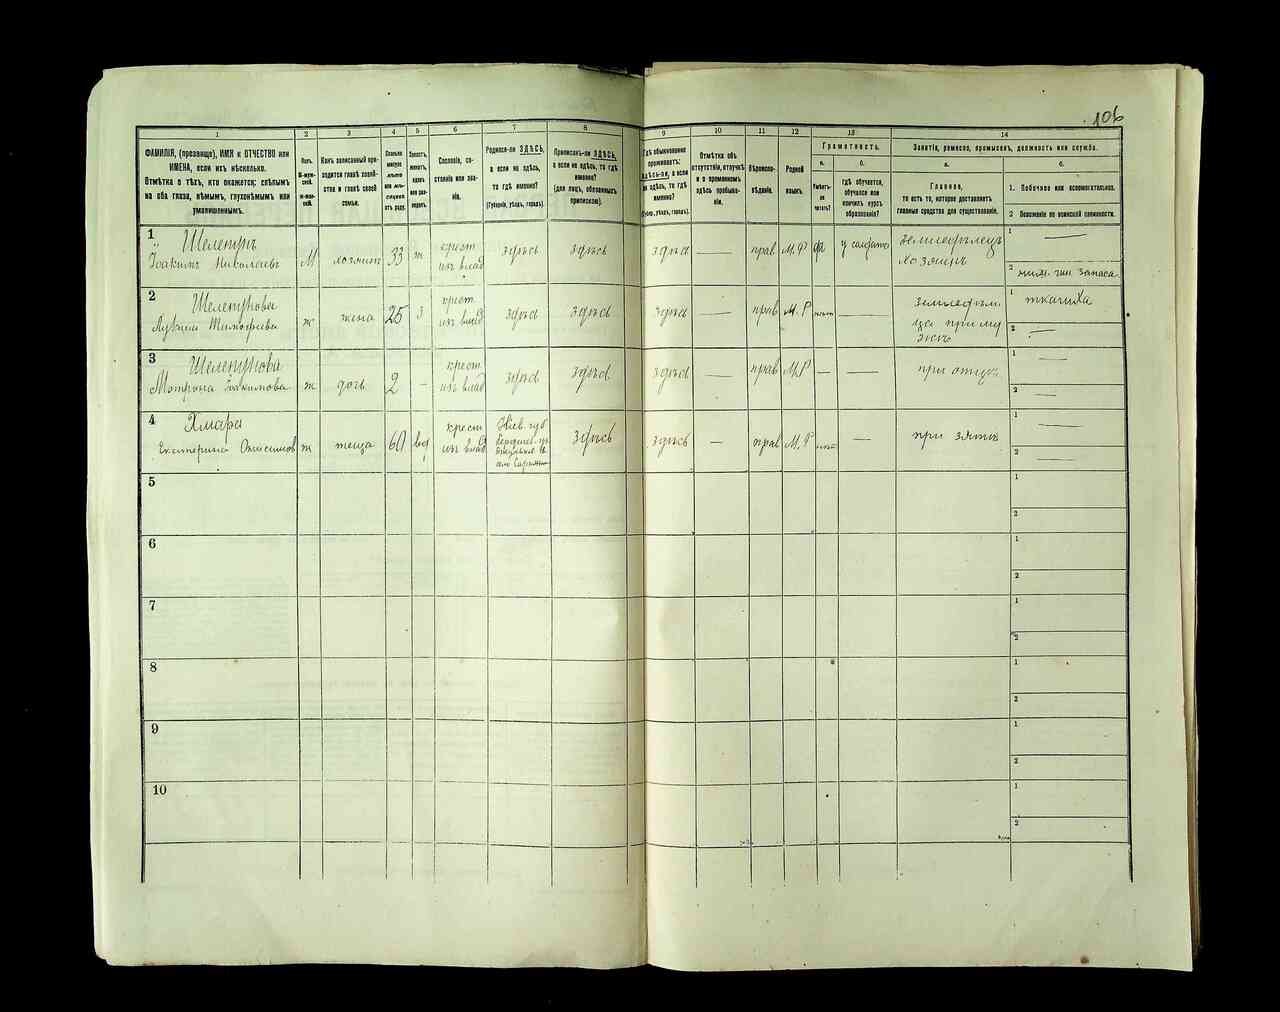 106
1
2
3
4
5
6
7
8
9
10
11
12
13
14
ФАМИЛІЯ, (прозвище), ИМЯ и ОТЧЕСТВО или
ИМЕНА, если ихъ нѣсколько.
Отмѣтка о тѣхъ, кто окажется: слѣпымъ
на оба глаза, нѣмымъ, глухонѣмымъ или
умалишеннымъ.
Полъ.
М-муж-
ской.
Ж-жен-
скій.
Какъ записанный при-
ходится главѣ хозяй-
ства и главѣ своей
семьи.
Сколько
минуло
лѣтъ
или мѣ-
сяцевъ
отъ роду.
Холостъ,
женатъ,
вдовъ
или раз-
веденъ.
Сословіе, со-
стояніе или зва-
ніе.
Родился-ли ЗДѢСЬ,
а если не здѣсь,
то гдѣ именно?
(Губернія, уѣздъ, городъ).
Приписанъ-ли ЗДѢСЬ,
а если не здѣсь, то гдѣ
именно?
(для лицъ, обязанныхъ
припискою).
Гдѣ обыкновенно
проживаетъ:
здѣсь-ли, а если
не здѣсь, то гдѣ
именно?
(Губер., уѣздъ, городъ).
Отмѣтка объ
отсутствіи, отлучкѣ
и о временномъ
здѣсь пребыва-
ніи.
Вѣроиспо-
вѣданіе.
Родной
языкъ.
Грамотность.
а.
Умѣетъ-
ли
читать?
б.
гдѣ обучается,
обучался или
кончилъ курсъ
образованія?
Занятіе, ремесло, промыселъ, должность или служба.
а.
Главное,
то есть то, которое доставляетъ
главныя средства для существованія.
б.
1. Побочное или вспомогательное.
2 Положеніе по воинской повинности.
1
Шелетунъ
Іоакимъ Николаевъ
М
хозяинъ
33
ж
крест
изъ влад
здѣсь
здѣсь
здѣсь
—
прав
М. Р
да
у солдатѣ
земледѣлецъ
хозяинъ
1
—
2
ниж. чин запаса
2
Шелетунова
Тимофѣева
ж
жена
25
З
крест.
изъ влад
здѣсь
здѣсь
здѣсь
—
прав
М. Р
нѣтъ
—
при му
жѣ
1
ткачиха
2
—
3
Шелетунова
Мотрона Іоакимова
ж
дочь
2
-
крест
изъ влад
здѣсь
здѣсь
здѣсь
—
прав
М. Р
—
—
при отцѣ
1
—
2
—
4
Хмара
Екатерина Онисимов
ж
теща
60
вд
крест
изъ влад
Кіев. губ
Бердичев. у
здѣсь
здѣсь
—
прав
М. Р
нѣтъ
—
при зятѣ
1
—
2
—
5
1
2
6
1
2
7
1
2
8
1
2
9
1
2
10
1
2